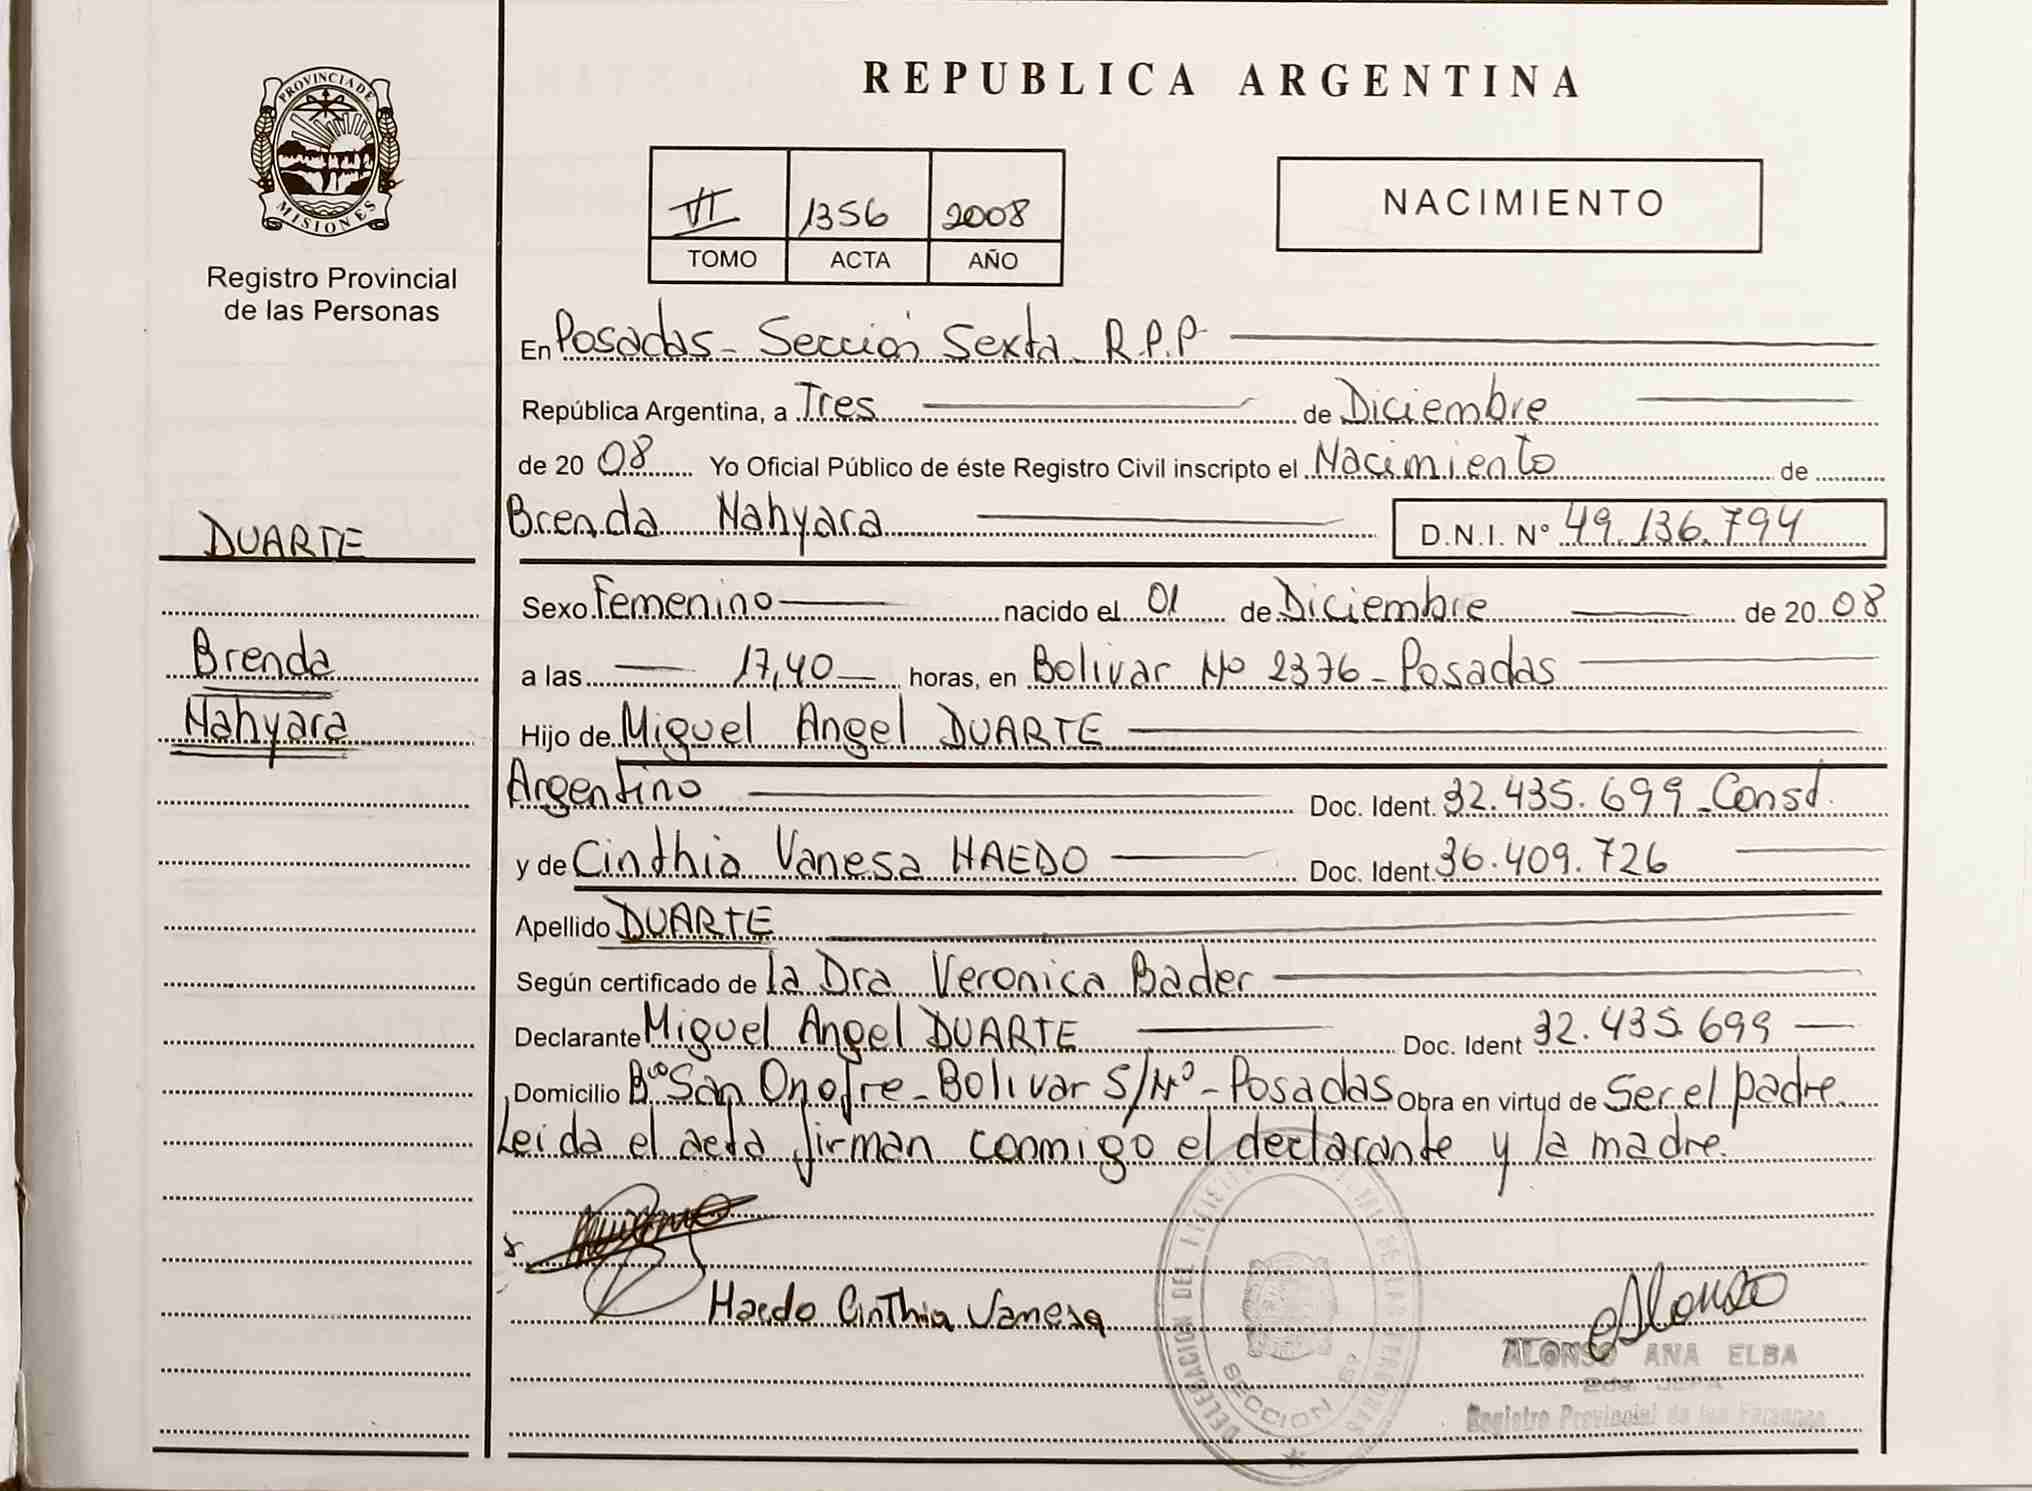 PROVINCIA DE
MISIONES
Registro Provincial
de las Personas
REPUBLICA ARGENTINA
VI 1356 2008
TOMO ACTA AÑO
NACIMIENTO
En Posadas - Sección Sexta R.P.P
República Argentina, a Tres de Diciembre
de 20 08 Yo Oficial Público de éste Registro Civil inscripto el Nacimiento de
Brenda Nahyara D.N.I. Nº 49.136.794
DUARTE
Brenda
Nahyara
Sexo Femenino nacido el 01 de Diciembre de 20 08
a las 17,40 horas, en Bolivar Nº 2376 - Posadas
Hijo de Miguel Angel DUARTE
Argentino Doc. Ident. 32.435.699 - Consd.
y de Cinthia Vanesa HAEDO Doc. Ident. 36.409.726
Apellido DUARTE
Según certificado de la Dra Veronica Bader
Declarante Miguel Angel DUARTE Doc. Ident 32.435.699
Domicilio Bº San Onofre - Bolivar S/Nº - Posadas Obra en virtud de Ser el padre
Leida el acta firman conmigo el declarante y la madre.
Haedo Cinthia Vanesa
Alonso
ALONSO ANA ELBA
Registro Provincial de las Personas
DELEGACION DEL
SECCION 6ª